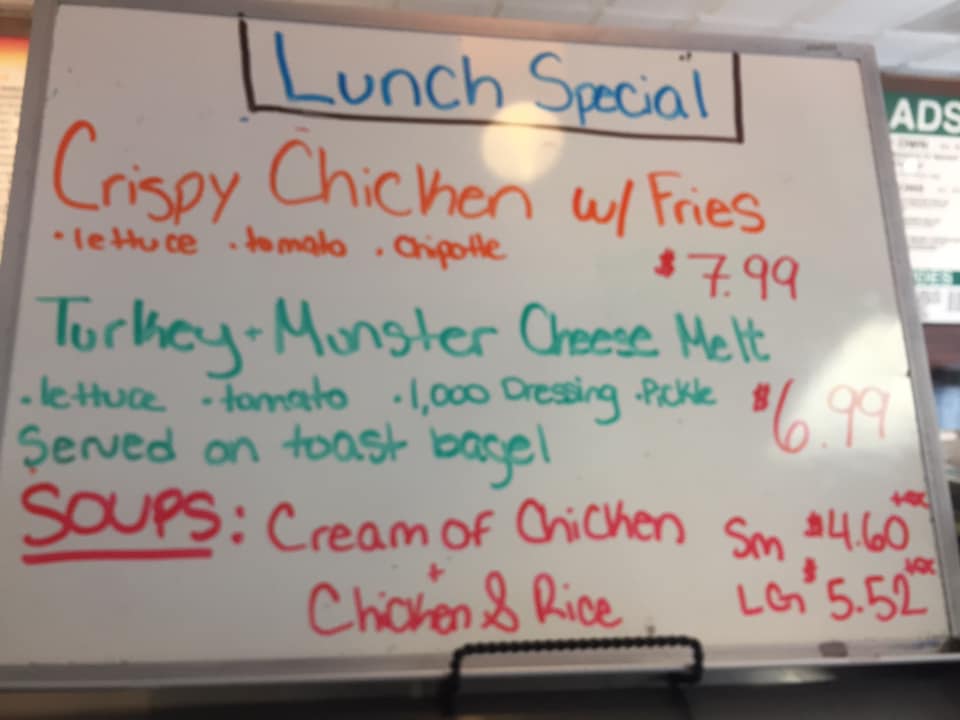 Lunch Special
Crispy Chicken w/ Fries
• lettuce • tomato • Chipotle
$7.99
Turkey + Munster Cheese Melt
• lettuce • tomato • 1,000 Dressing • Pickle $6.99
Served on toast bagel
SOUPS: Cream of Chicken Sm $4.60 +tax
+
Chicken & Rice LG $5.52 +tax
ADS